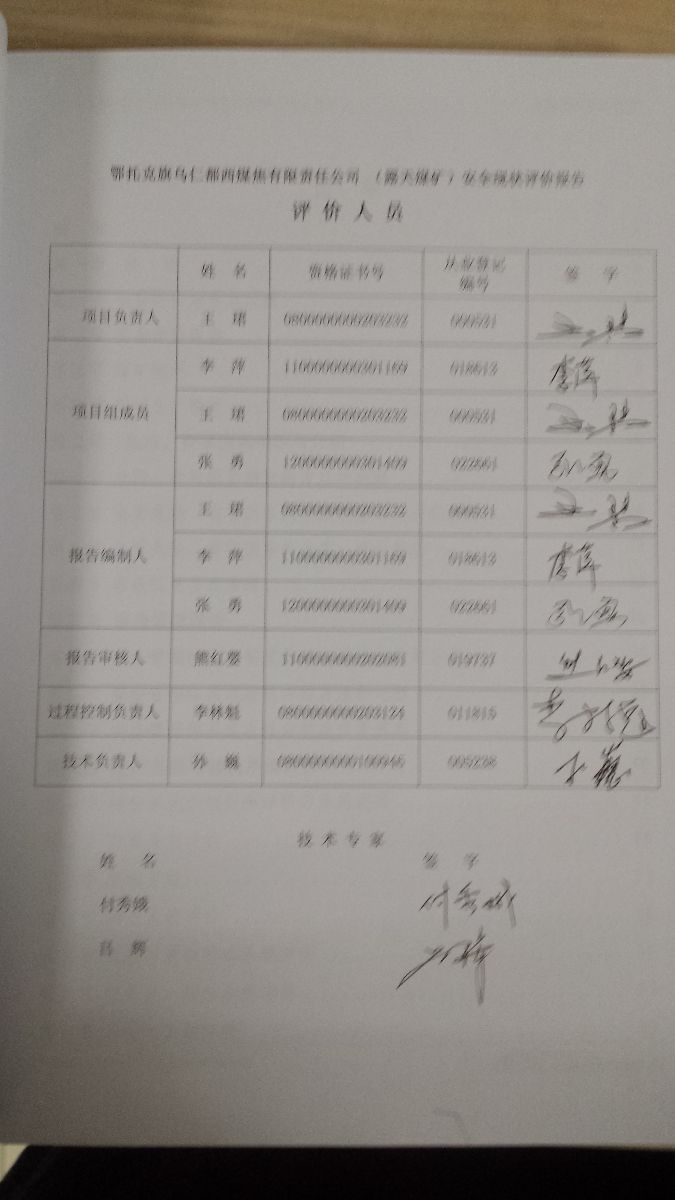 鄂托克旗乌仁都西煤焦有限责任公司（露天煤矿）安全现状评价报告
评 价 人 员
姓 名 资格证书号 从业登记编号 签 字
项目负责人 王 珺 0800000000203232 000531
项目组成员 李 萍 1100000000301169 018613 李萍
王 珺 0800000000203232 000531
张 勇 1200000000301409 022661
报告编制人 王 珺 0800000000203232 000531
李 萍 1100000000301169 018613 李萍
张 勇 1200000000301409 022661
报告审核人 熊红 1100000000202081 019737
过程控制负责人 李林 0800000000203124 011815
技术负责人 孙 巍 0800000000100946 005238
技 术 专 家
姓 名 签 字
付秀娥 付秀娥
辉